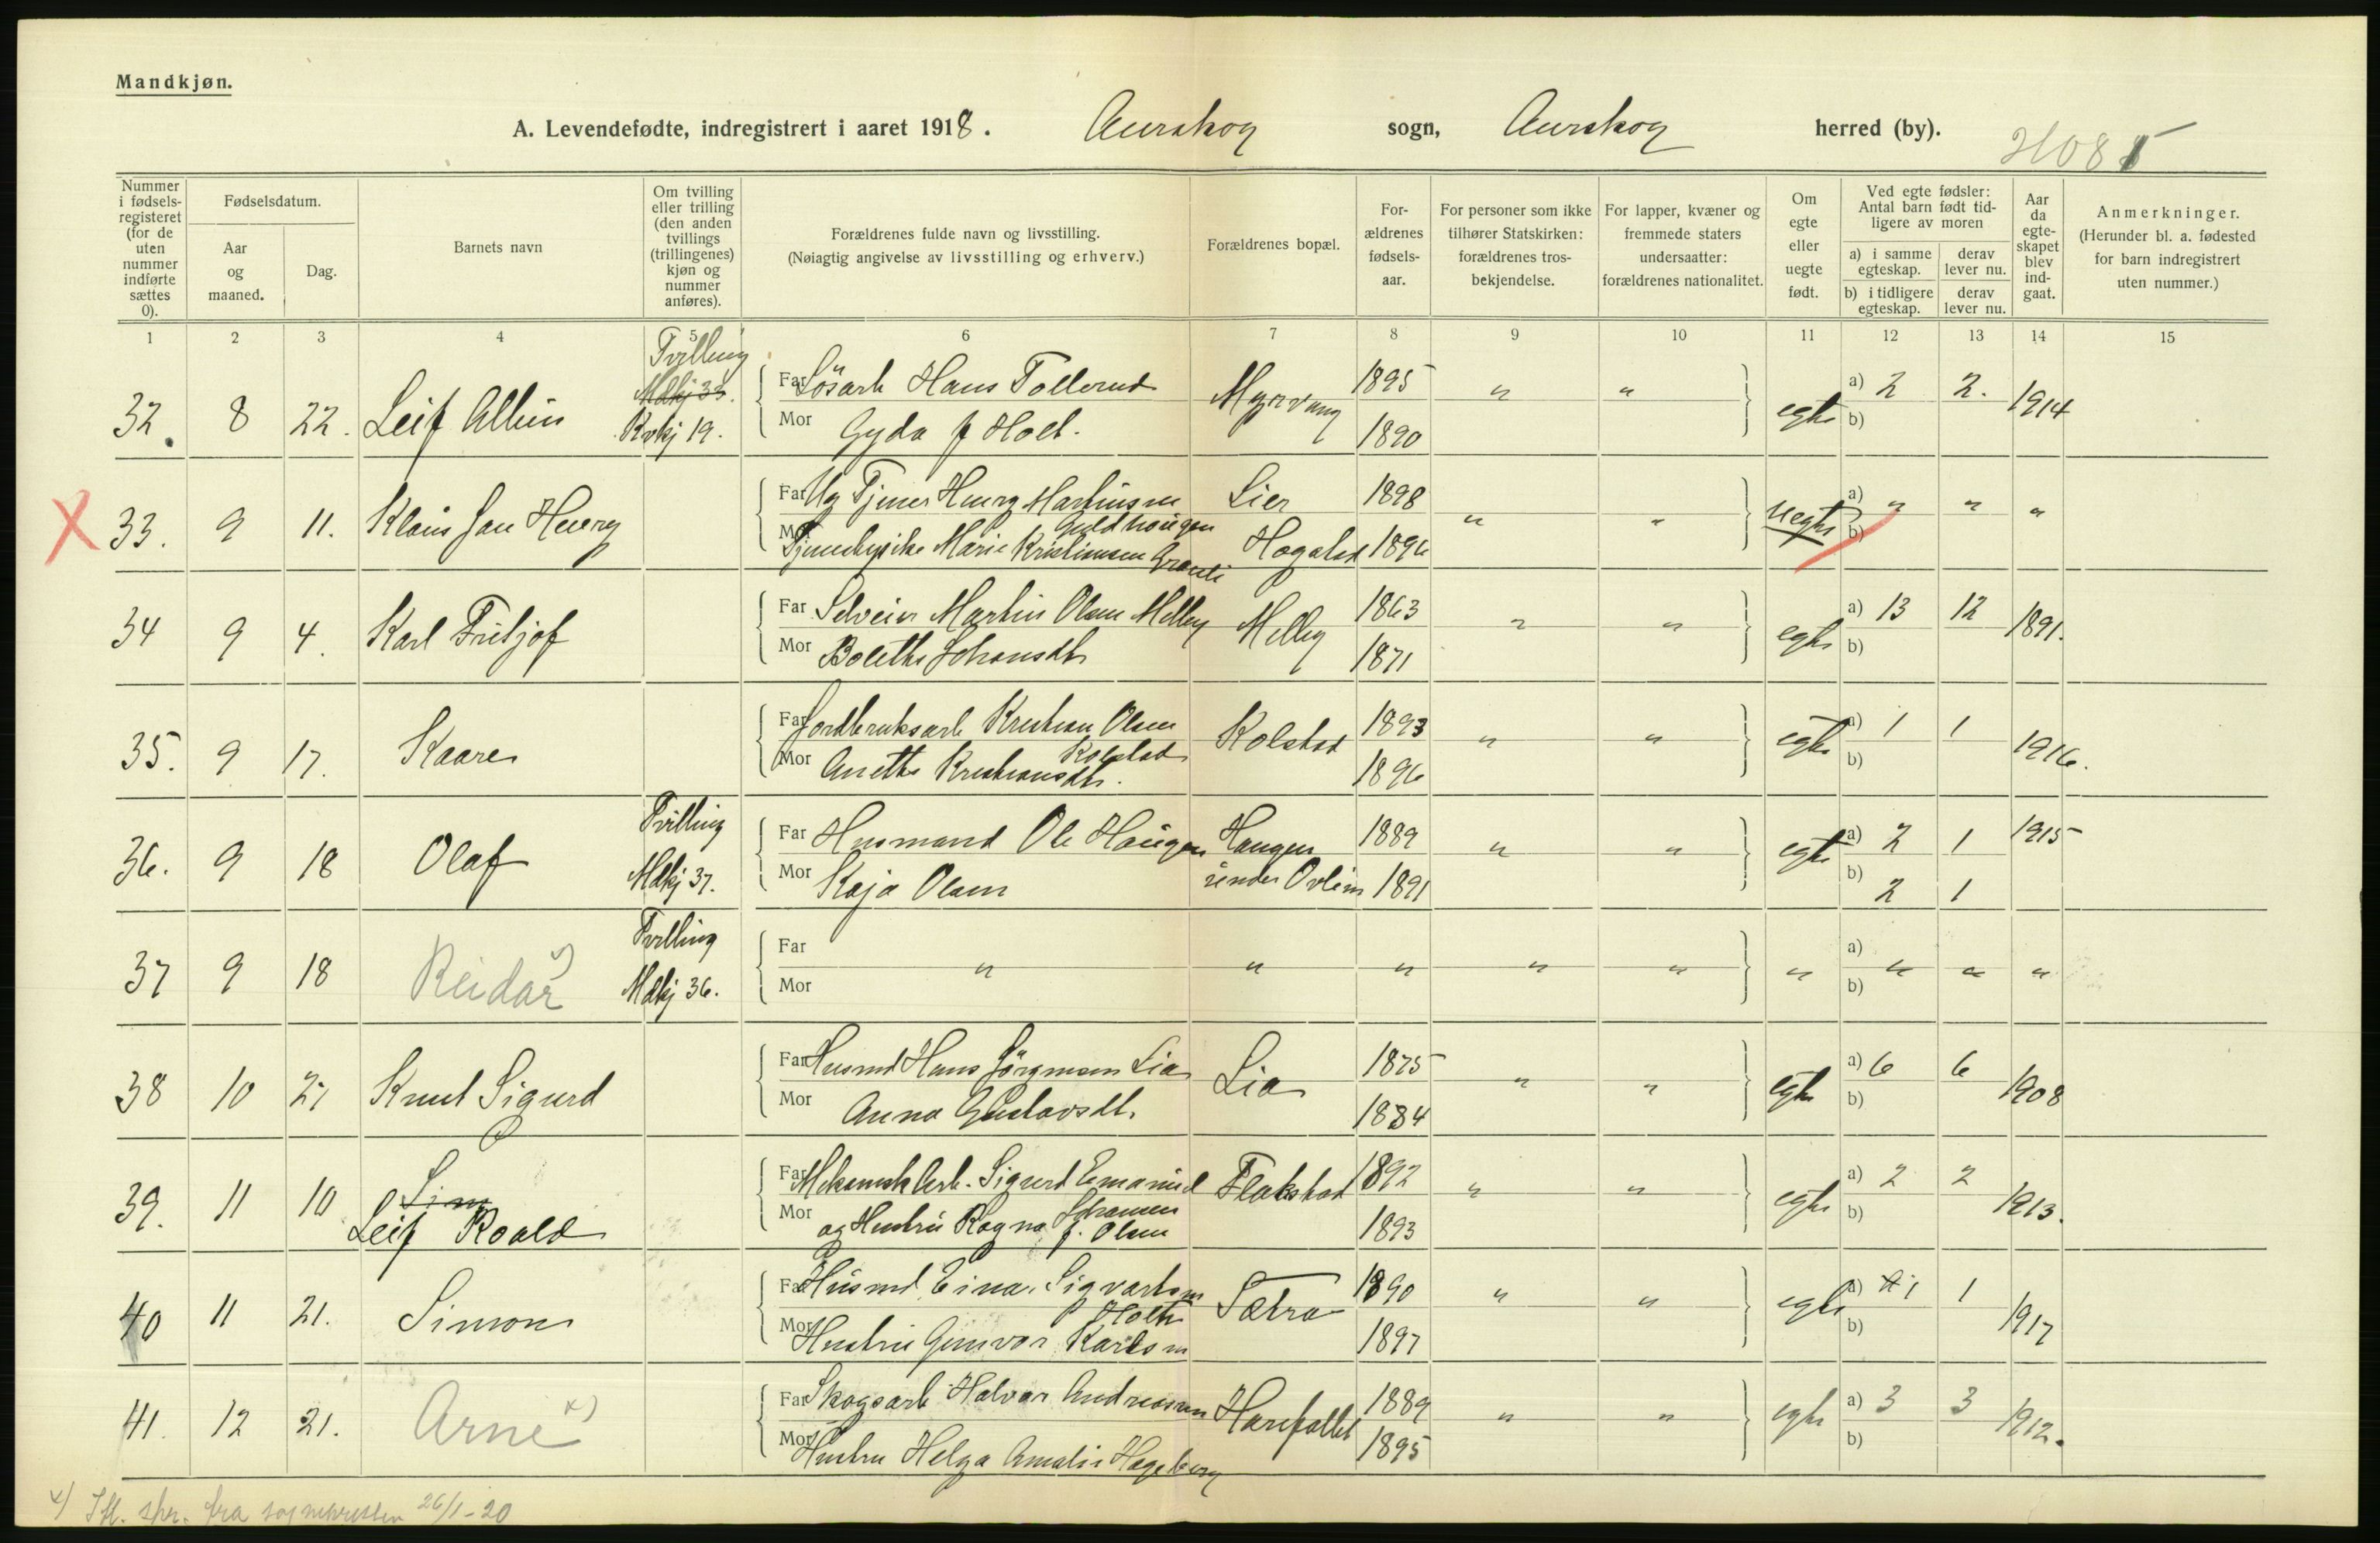 Mandkjøn.
A. Levendefødte, indregistrert i aaret 1918. Aurskog sogn, Aurskog herred (by).
Nummer i fødsels-registeret (for de uten nummer indførte sættes 0).
Fødselsdatum.
Aar og maaned.
Dag.
Barnets navn
Om tvilling eller trilling (den anden tvillings (trillingenes) kjøn og nummer anføres).
Forældrenes fulde navn og livsstilling.
(Nøiagtig angivelse av livsstilling og erhverv.)
Forældrenes bopæl.
For-ældrenes fødsels-aar.
For personer som ikke tilhører Statskirken: forældrenes tros-bekjendelse.
For lapper, kvæner og fremmede staters undersaatter: forældrenes nationalitet.
Om egte eller uegte født.
Ved egte fødsler: Antal barn født tid-ligere av moren
a) i samme egteskap. derav lever nu.
b) i tidligere egteskap. derav lever nu.
Aar da egte-skapet blev ind-gaat.
Anmerkninger.
(Herunder bl. a. fødested for barn indregistrert uten nummer.)
1 2 3 4 5 6 7 8 9 10 11 12 13 14 15
32. 8 22. Leif Tvilling Mdkj 33. Kvkj 19.
Far Løsarb Hans Tollerud Myrvang 1895 " " egte a) 2 2. 1914
Mor Gyda f Holt. 1890 b)
33. 9 11. Klaus Jan Henry
Far Ug Tjener Henry Martinsen Lier 1898 " " uegte a) " " "
Guldhaugen
Mor Tjenestepike Marie Kristiansen Hogalsd 1896 b)
34 9 4. Karl Fritjof
Far Selveier Martin Olsen Melby Melby 1863 " " egte a) 13 12 1891.
Mor Bolette Johansdtr 1871 b)
35. 9 17. Kaare
Far Jordbruksarb Kristian Olsen Kolstad 1893 " " egte a) 1 1 1916.
Kolstad
Mor Anette Kristiansdtr. 1896 b)
36. 9 18 Olaf Tvilling Mdkj 37.
Far Husmand Ole Haugen Haugen 1889 " " egte a) 2 1 1915
Mor Kaja Olsen under 1891 b) 2 1
37 9 18 Reidar x) Tvilling Mdkj 36.
Far " " " " " " a) " " "
Mor b)
38 10 27 Knut Sigurd
Far Husmd Hans Jörgensen Lia Lia 1875 " " egte a) 6 6 1908
Mor Anna Gustavsdt. 1884 b)
39. 11 10 Sim
Leif Roald
Far Mekanisk Arb. Sigurd Emanuel Flakstad 1892 " " egte a) 2 2 1913.
Johansen
Mor og Hustru Ragna f. Olsen 1893 b)
40 11 21. Simon
Far Husmd. Einar Sigvartsen Sætra 1890 " " egte a) 1 1 1917
Holt
Mor Hustru Gunvor Karlsen 1897 b)
41. 12 21. Arne x)
Far Skogsarb Halvor Andreassen Harefallet 1889 " " egte a) 3 3 1912.
Mor Hustru Helga Amalie Hageberg 1895 b)
x) Ifl. spr. fra sognepresten 26/1-20